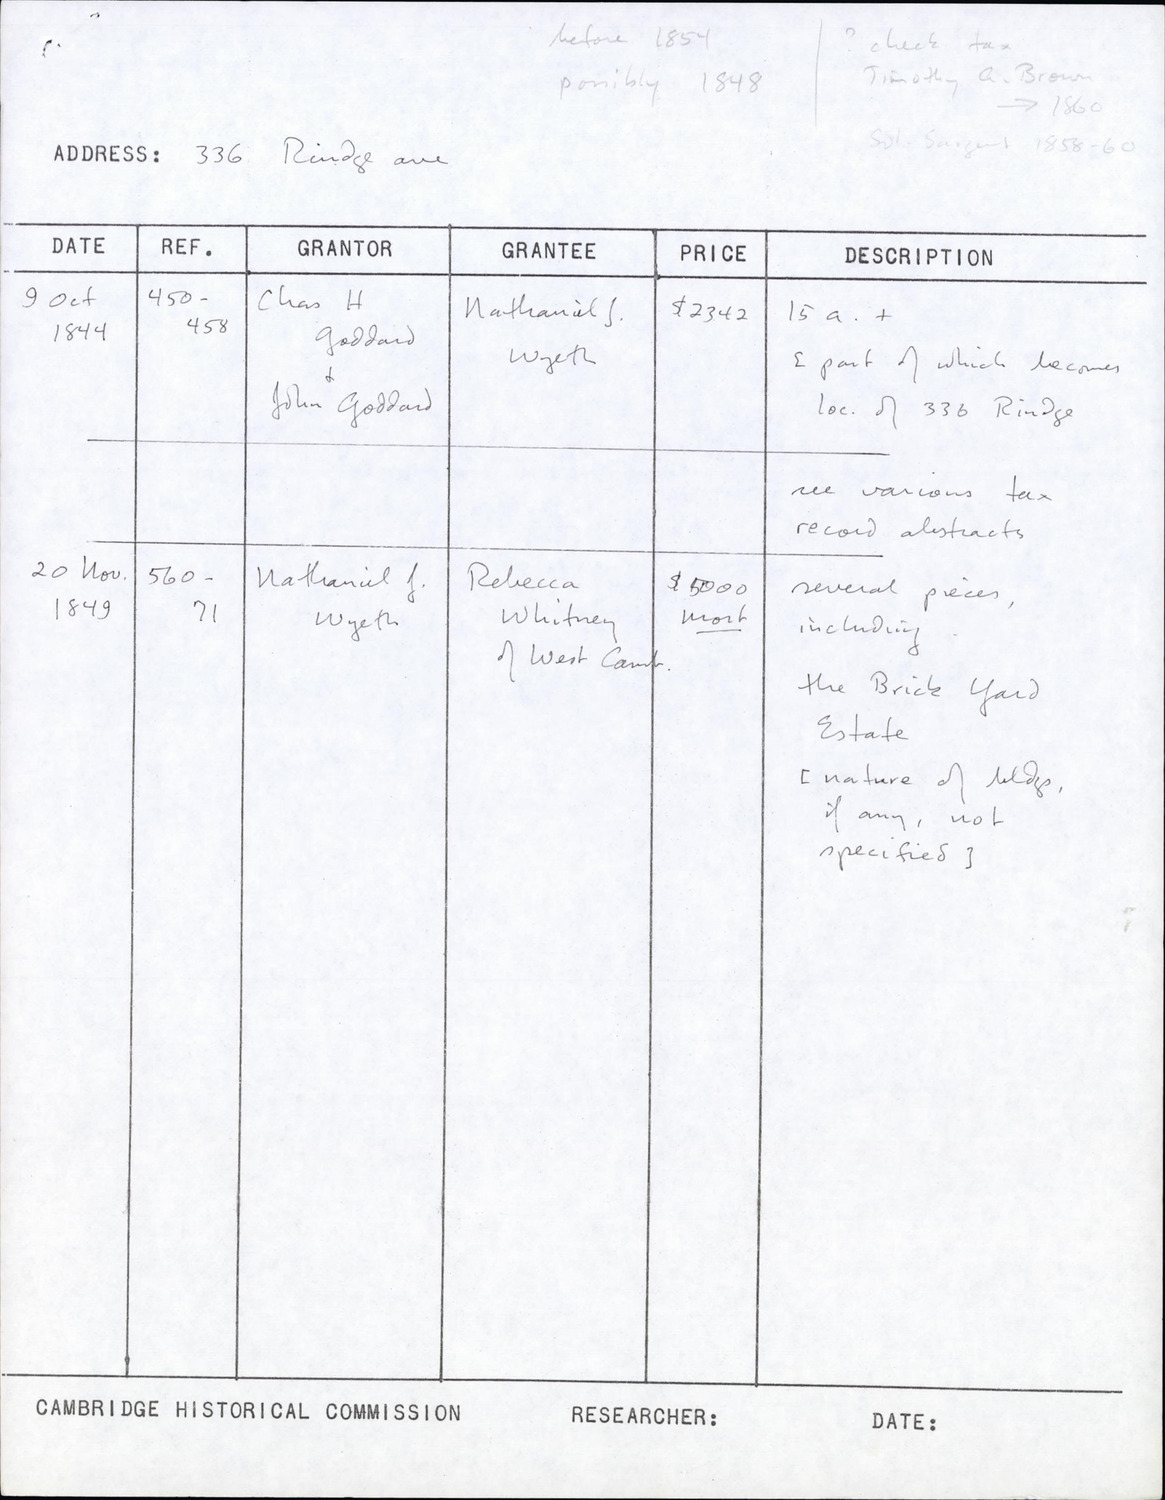 before 1854
possibly 1848
? check tax
Timothy A. Brown
→ 1860
Sol. Sargent 1858-60
ADDRESS: 336 Rindge ave
DATE REF. GRANTOR GRANTEE PRICE DESCRIPTION
9 Oct
1844
450-
458
Chas H
Goddard
+
John Goddard
Nathaniel J.
Wyeth
$2342
15 a. +
Σ part of which becomes
loc. of 336 Rindge
see various tax
record abstracts
20 Nov.
1849
560-
71
Nathaniel J.
Wyeth
Rebecca
Whitney
of West Camb.
$5000
mort
several pieces,
including
the Brick Yard
Estate
[nature of bldgs,
if any, not
specified]
CAMBRIDGE HISTORICAL COMMISSION RESEARCHER: DATE: